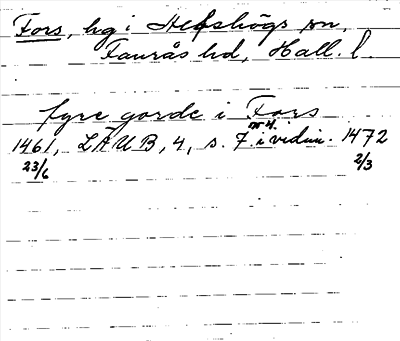 Fors, hg i Alfshögs sn,
Faurås hd, Hall. l.
fyre gorde i Fors
1461, LÄUB, 4, s. 7. i vidim. 1472
nr 4.
23/6 2/3